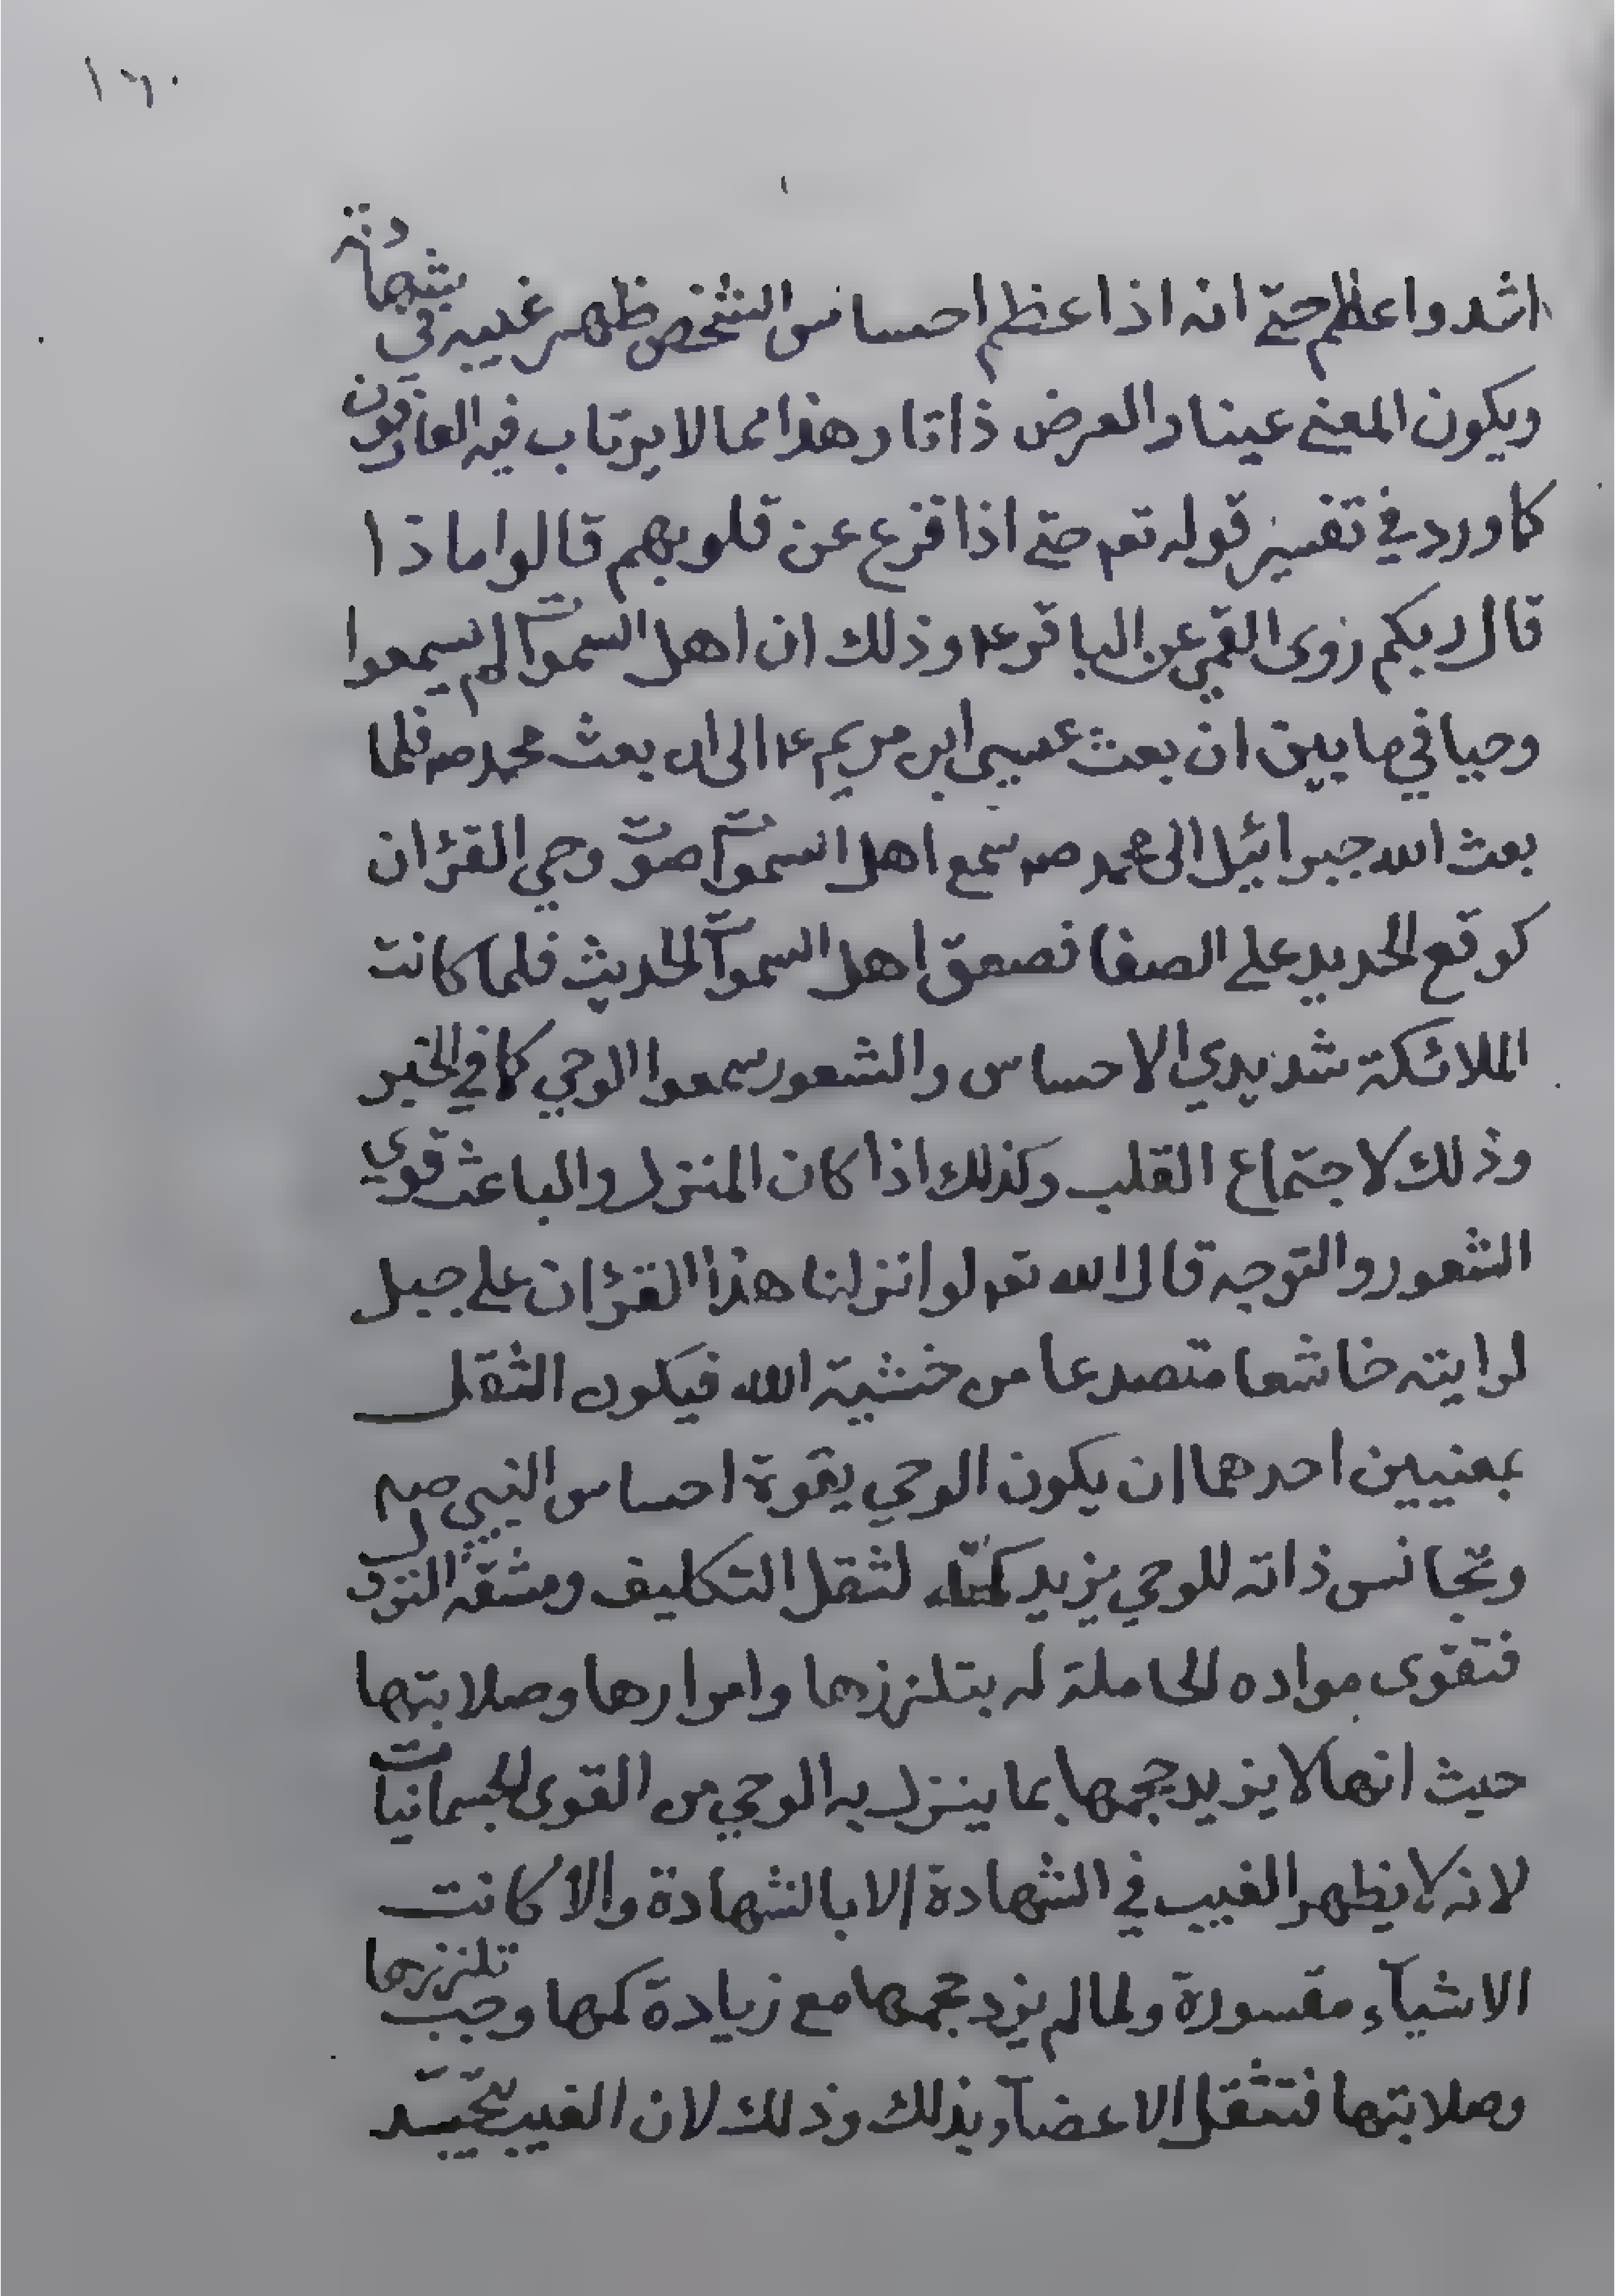 ١٦٠
اشد واعظم حتى انه اذا عظم احساس الشخص ظهر غيبه في بشهادته
ويكون المعنى عينا والعرض ذاتا وهذا مما لا يرتاب فيه العارفون
كما ورد في تفسير قوله تعـ حتى اذا فزع عن قلوبهم قالوا ماذا
قال ربكم روى القمي عن الباقر ع وذلك ان اهل السموات لم يسمعوا
وحيا في ما بين ان بعث عيسى ابن مريم ع الى ان بعث محمد صـ فلما
بعث الله جبرائيل الى محمد صـ سمع اهل السموات صوت وحي القرءان
كوقع الحديد على الصفا فصعق اهل السموات الحديث فلما كانت
الملائكة شديدي الاحساس والشعور سمعوا الوحي كما في الخبر
وذلك لاجتماع القلب وكذلك اذا كان المنزل والباعث قوي
الشعور والتوجه قال الله تعـ لو انزلنا هذا القرءان على جبل
لرايته خاشعا متصدعا من خشية الله فيكون الثقل
بمعنيين احدهما ان يكون الوحي يقوة احساس النبي صـ
وتجانس ذاته للوحي يزيد لثقل التكليف ومشقة النزول
فتقوى مواده الحاملة له بتلززها وامرارها وصلابتها
حيث انها لا يزيد حجمها بما ينزل به الوحي من القوى الجسمانيات
لانه لا يظهر الغيب في الشهادة الا بالشهادة والا كانت
الاشيآء مقسورة ولما لم يزد حجمها مع زيادة كمها وجب تلززها
وصلابتها فتثقل الاعضآء بذلك وذلك لان الغيب يتجسد